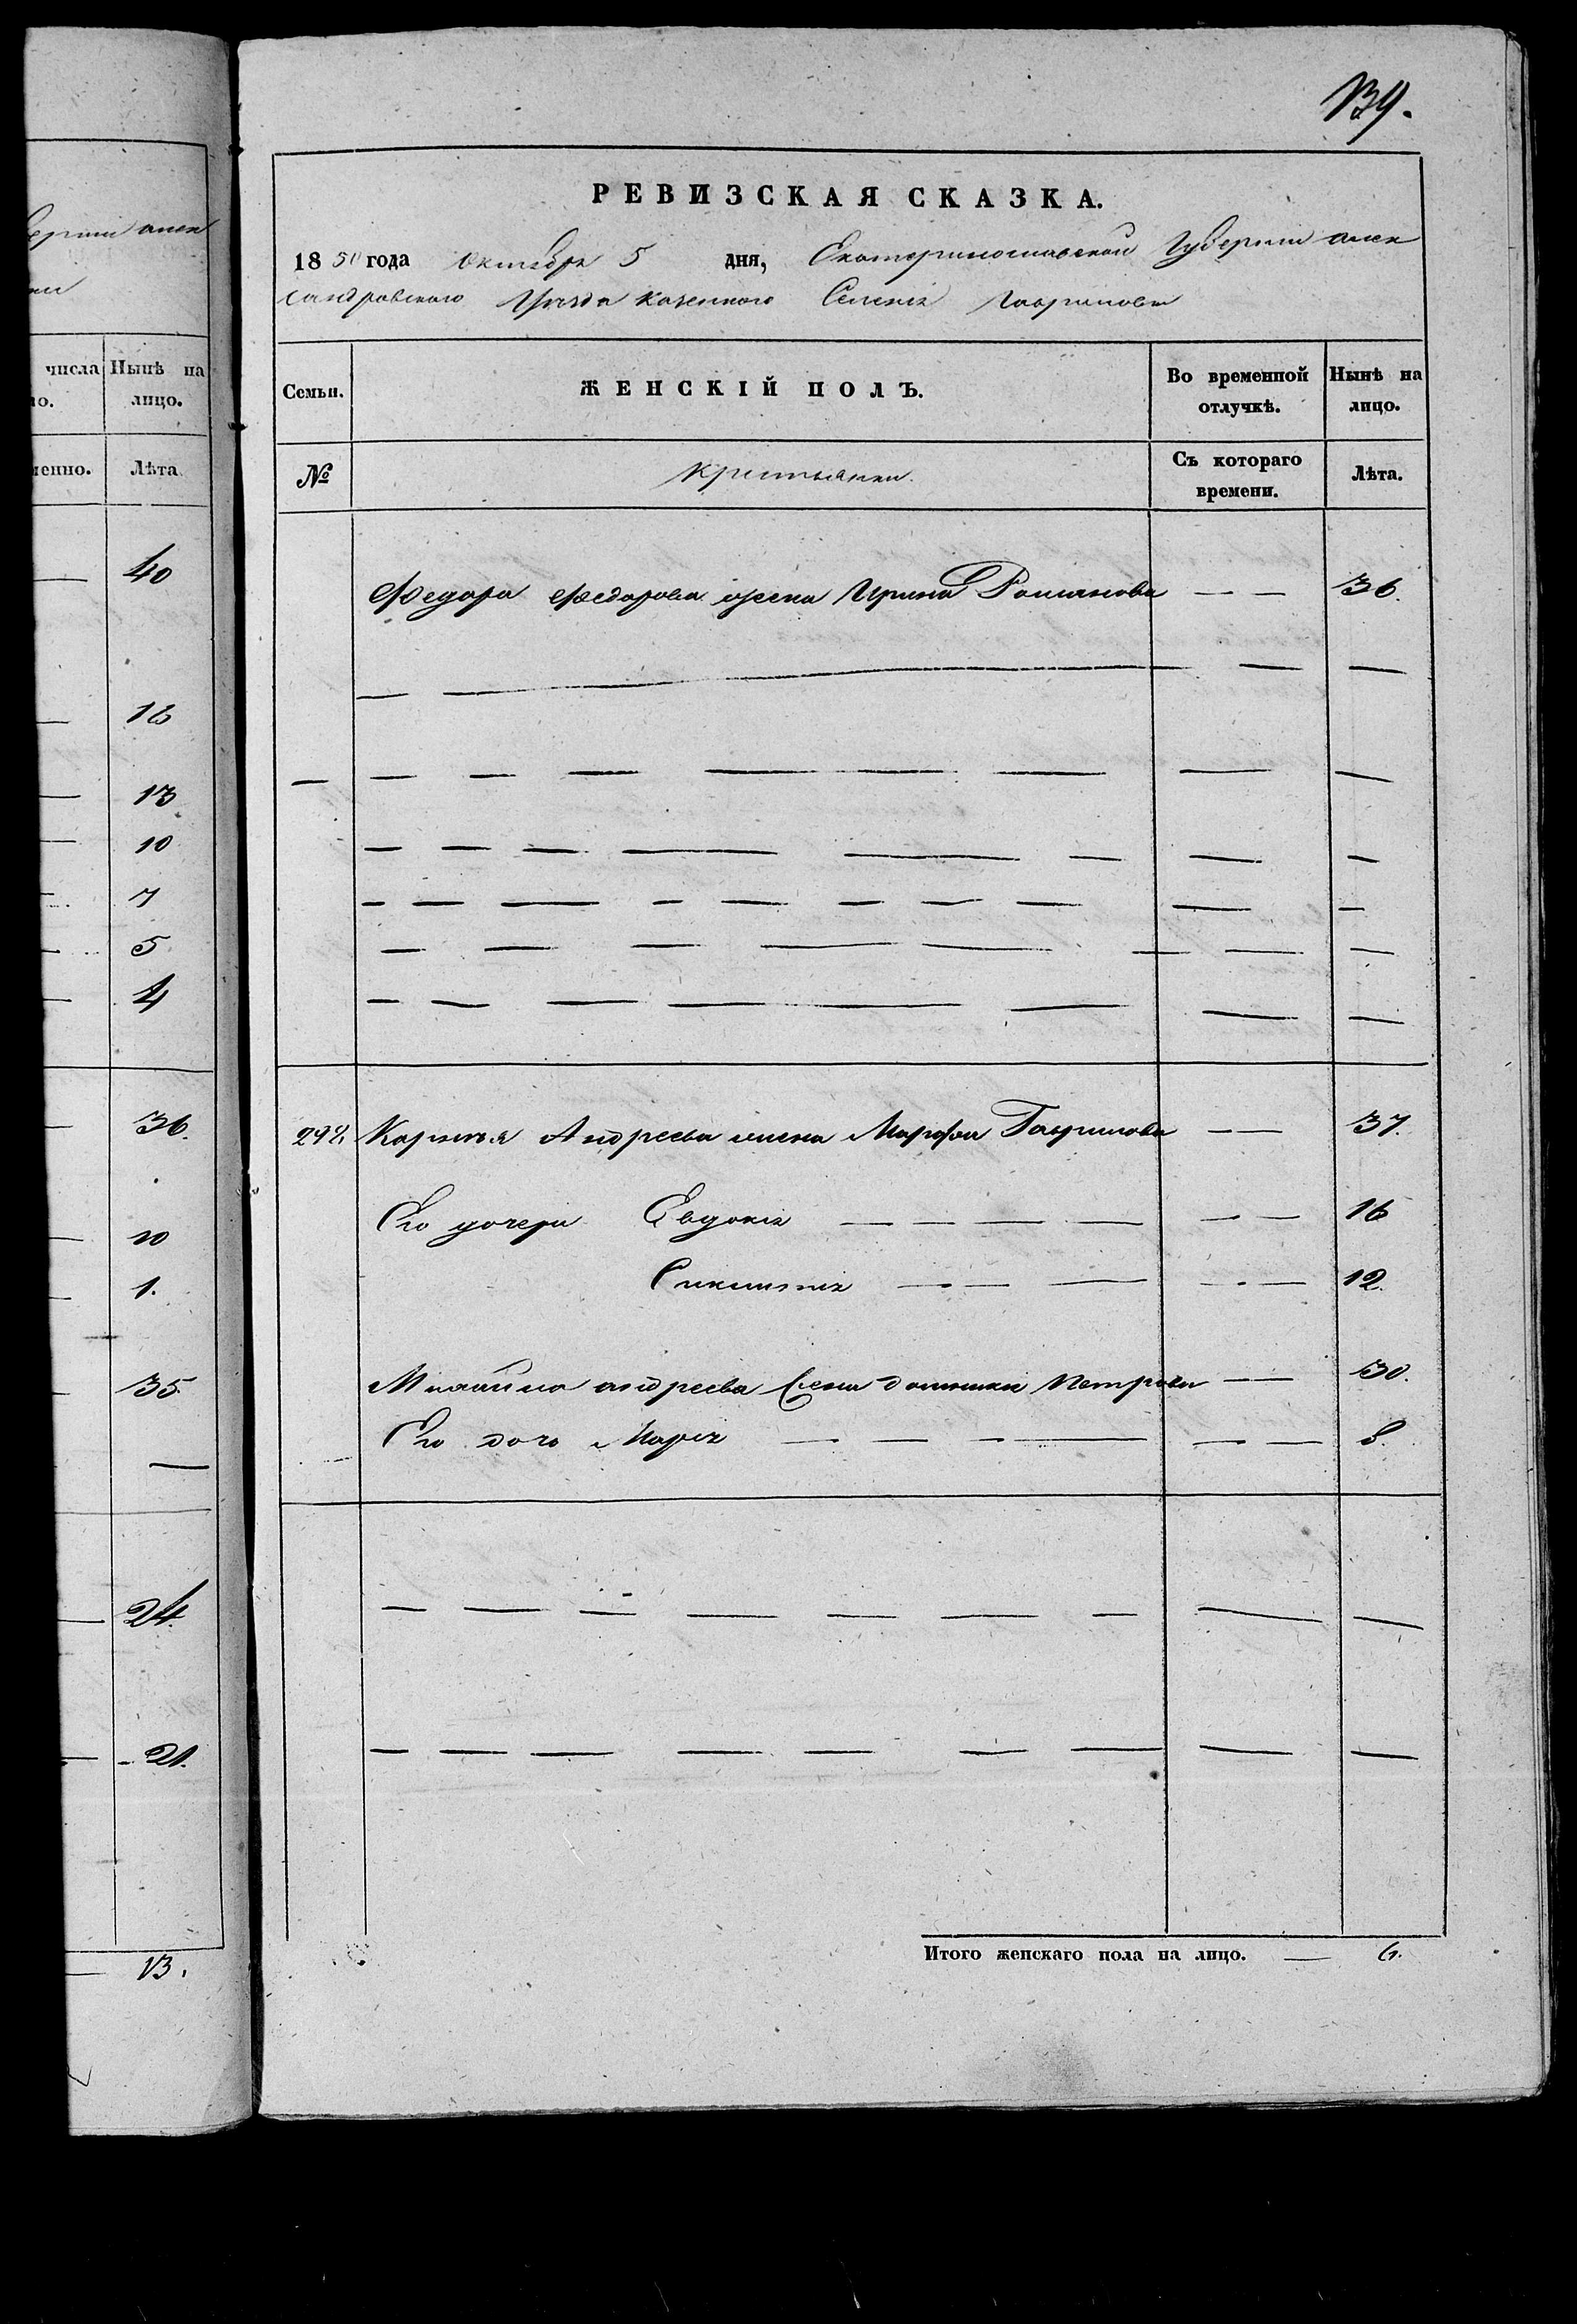 139.
верніи алек
числа Нынѣ на
лицо.
Лѣта.
40
16
13
10
7
5
4
36.
10
1.
35.
24.
21.
13.
РЕВИЗСКАЯ СКАЗКА.
1850 года Октября 5 дня, Екатеринославской Губерніи алек
сандровскаго Уѣзда казеннаго Селенія Гавриловки
Семьи. ЖЕНСКІЙ ПОЛЪ. Во временной отлучкѣ. Нынѣ на лицо.
№ Крестьянки. Съ котораго времени. Лѣта.
Федора Федорова жена Ирина Романова — — 36.
298. Карпа Андреева жена Марфа Гаврилова — — 37.
Его дочери Евдокія — — — — — — 16
12.
Михайла андреева жена домника Петрова — — 30.
Его дочь Марія — — — — — — 8.
Итого женскаго пола на лицо. — 6.